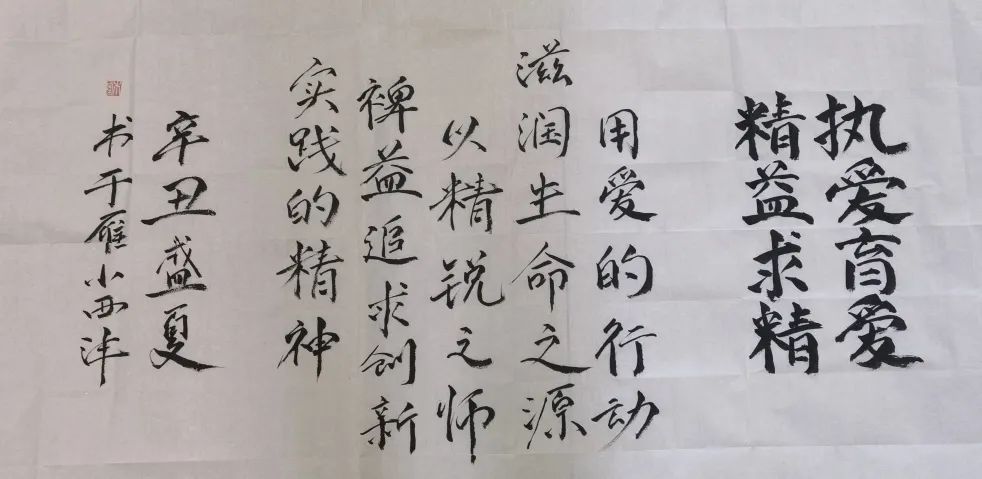 执爱育爱
精益求精
用爱的行动
滋润生命之源
以精锐之师
裨益追求创新
实践的精神
辛丑盛夏
书于雁小西沣